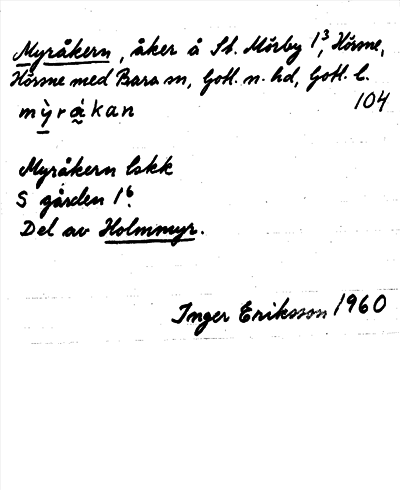 Myråkern, åker å St. Mörby 1³, Hörsne,
Hörsne med Bara sn, Gotl. n. hd, Gotl. l.
mỳråkan 104
Myråkern lskk
S gården 1⁶.
Del av Holmmyr.
Inger Eriksson 1960